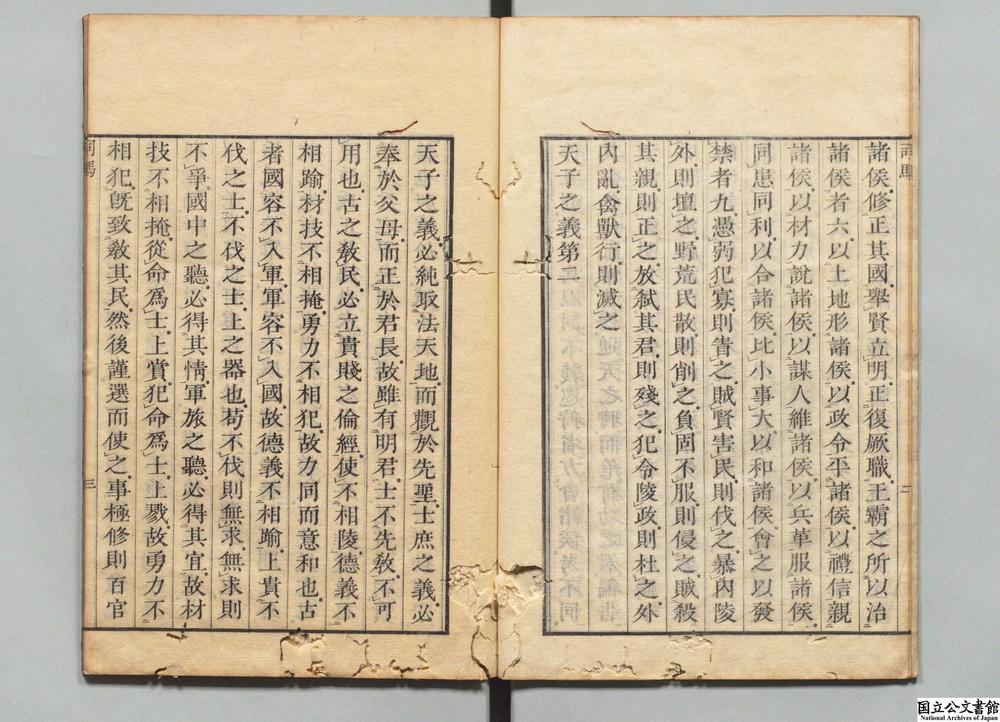 諸侯修正其國舉賢立明正復厥職王霸之所以治
諸侯者六以土地形諸侯以政令平諸侯以禮信親
諸侯以材力說諸侯以謀人維諸侯以兵革服諸侯
同患同利以合諸侯比小事大以和諸侯會之以發
禁者九憑弱犯寡則眚之賊賢害民則伐之暴內陵
外則壇之野荒民散則削之負固不服則侵之賊殺
其親則正之放弑其君則殘之犯令陵政則杜之外
內亂禽獸行則滅之
天子之義第二
天子之義必純取法天地而觀於先聖士庶之義必
奉於父母而正於君長故雖有明君士不先教不可
用也古之敎民必立貴賤之倫經使不相陵德義不
相踰材技不相掩勇力不相犯故力同而意和也古
者國容不入軍軍容不入國故德義不相踰上貴不
伐之士不伐之士上之器也苟不伐則無求無求則
不爭國中之聽必得其情軍旅之聽必得其宜故材
技不相掩從命爲士上賞犯命爲士上戮故勇力不
相犯旣致敎其民然後謹選而使之事極修則百官
司馬
二
司馬
三
国立公文書館
National Archives of Japan